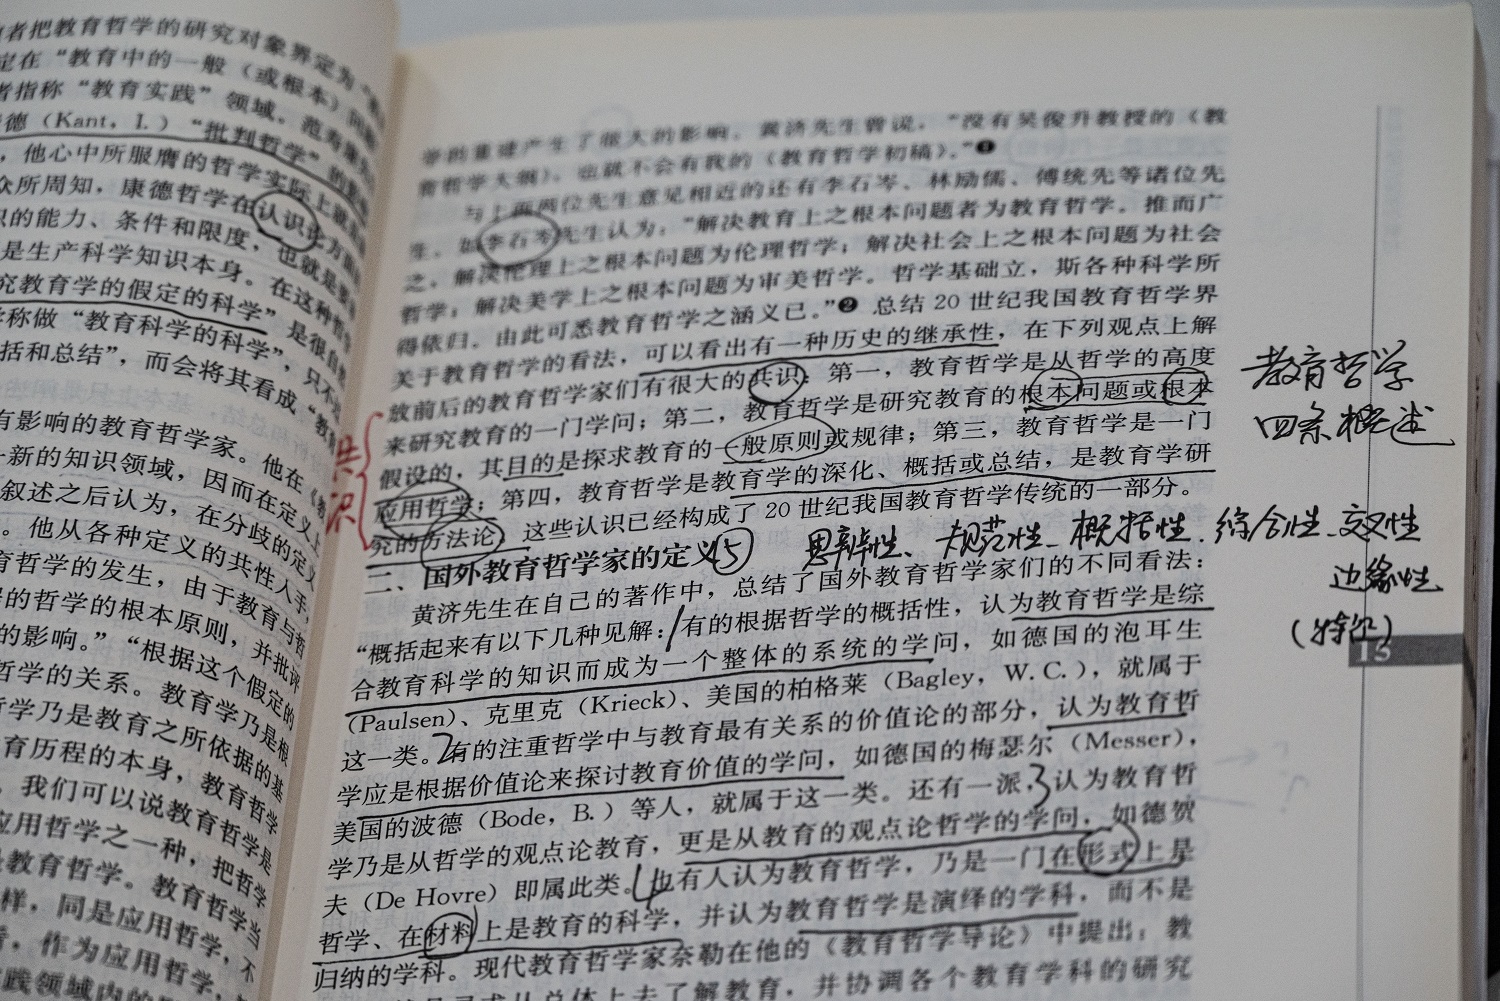 者把教育哲学的研究对象界定为
定在“教育中的一般（或根本）问题
者指称“教育实践”领域。
德（Kant，I.）“批判哲学”的
，他心中所服膺的哲学实际上就
众所周知，康德哲学在认识论方面
识的能力、条件和限度，也就是要
是生产科学知识本身。在这种
究教育学的假定的科学”是很自
称做“教育科学的科学”，只不
括和总结”，而会将其看成“教
有影响的教育哲学家。他在《教
一新的知识领域，因而在定义上
叙述之后认为，在分歧的定义
。他从各种定义的共性入手，
育哲学的发生，由于教育与哲
的哲学的根本原则，并批评
的影响。”“根据这个假定的
哲学的关系。教育学乃是根
哲学乃是教育之所依据的基
育历程的本身，教育哲学
。我们可以说教育哲学是
应用哲学之一种，把哲学
教育哲学。教育哲学当
样，同是应用哲学，不
，作为应用哲学，
践领域内的
学的重建产生了很大的影响。黄济先生曾说，“没有吴俊升教授的《教
育哲学大纲》，也就不会有我的《教育哲学初稿》。”❶
与上面两位先生意见相近的还有李石岑、林励儒、傅统先等诸位先
生。如李石岑先生认为：“解决教育上之根本问题者为教育哲学。推而广
之，解决伦理上之根本问题为伦理哲学；解决社会上之根本问题为社会
哲学；解决美学上之根本问题为审美哲学。哲学基础立，斯各种科学所
得依归。由此可悉教育哲学之涵义已。”❷ 总结 20 世纪我国教育哲学界
关于教育哲学的看法，可以看出有一种历史的继承性，在下列观点上解
放前后的教育哲学家们有很大的共识：第一，教育哲学是从哲学的高度
来研究教育的一门学问；第二，教育哲学是研究教育的根本问题或根本
假设的，其目的是探求教育的一般原则或规律；第三，教育哲学是一门
应用哲学；第四，教育哲学是教育学的深化、概括或总结，是教育学研
究的方法论。这些认识已经构成了 20 世纪我国教育哲学传统的一部分。
共识
教育哲学
四条概述
二、国外教育哲学家的定义 ⑤ 思辨性、规范性、概括性、综合性、交叉性
边缘性
黄济先生在自己的著作中，总结了国外教育哲学家们的不同看法：
“概括起来有以下几种见解：1有的根据哲学的概括性，认为教育哲学是综
合教育科学的知识而成为一个整体的系统的学问，如德国的泡耳生
（Paulsen）、克里克（Krieck）、美国的柏格莱（Bagley，W. C.），就属于
这一类。2有的注重哲学中与教育最有关系的价值论的部分，认为教育哲
学应是根据价值论来探讨教育价值的学问，如德国的梅瑟尔（Messer），
美国的波德（Bode，B.）等人，就属于这一类。还有一派，3认为教育哲
学乃是从哲学的观点论教育，更是从教育的观点论哲学的学问，如德贺
夫（De Hovre）即属此类。4也有人认为教育哲学，乃是一门在形式上是
哲学、在材料上是教育的科学，并认为教育哲学是演绎的学科，而不是
归纳的学科。现代教育哲学家奈勒在他的《教育哲学导论》中提出：教
从总体上去了解教育，并协调各个教育学科的研究
15